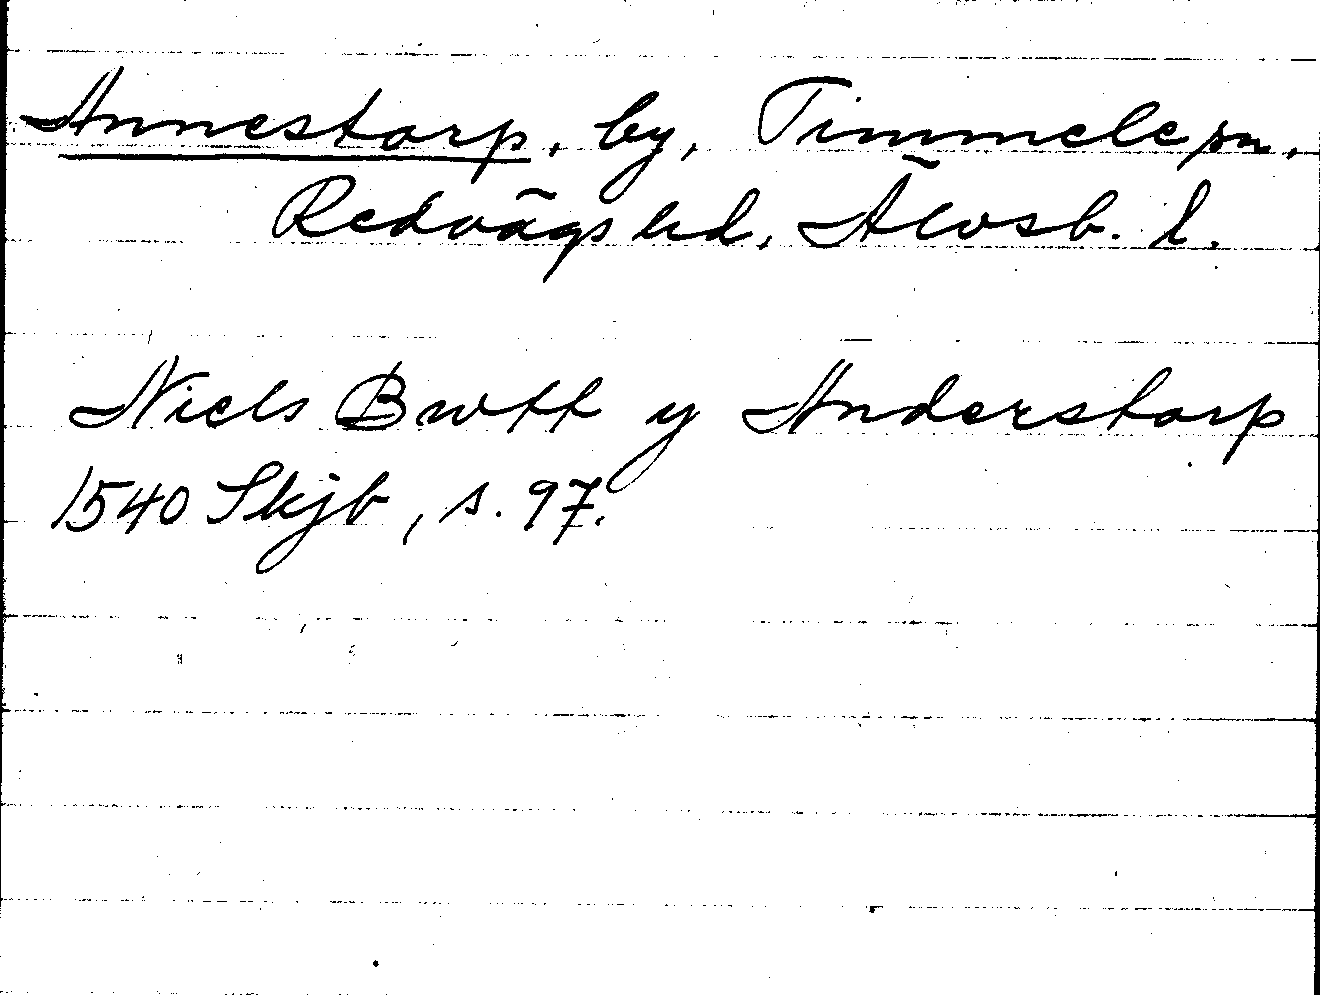 Annestorp, by, Timmele sn.
Redvägs hd, Älvsb. l.
Niels Bwtt y Anderstorp
1540 Skjb, s. 97.